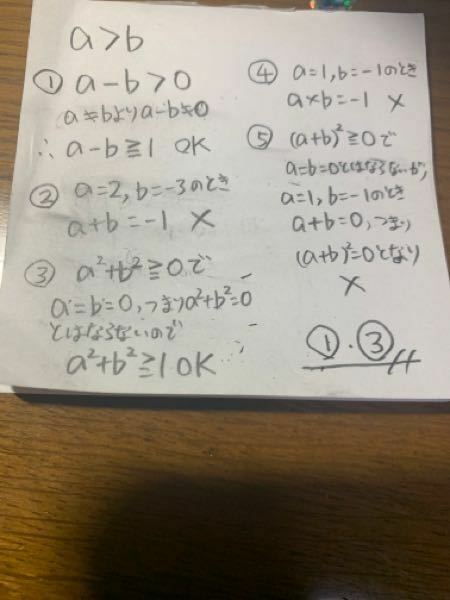 a>b
① a-b>0
a≠bよりa-b≠0
∴ a-b≧1 OK
② a=2, b=-3のとき
a+b=-1 ×
③ a²+b²≧0で
a=b=0,つまりa²+b²=0
とはならないので
a²+b²≧1 OK
④ a=1, b=-1のとき
a×b=-1 ×
⑤ (a+b)²≧0で
a=b=0とはならないが,
a=1, b=-1のとき
a+b=0,つまり
(a+b)²=0となり
×
①・③